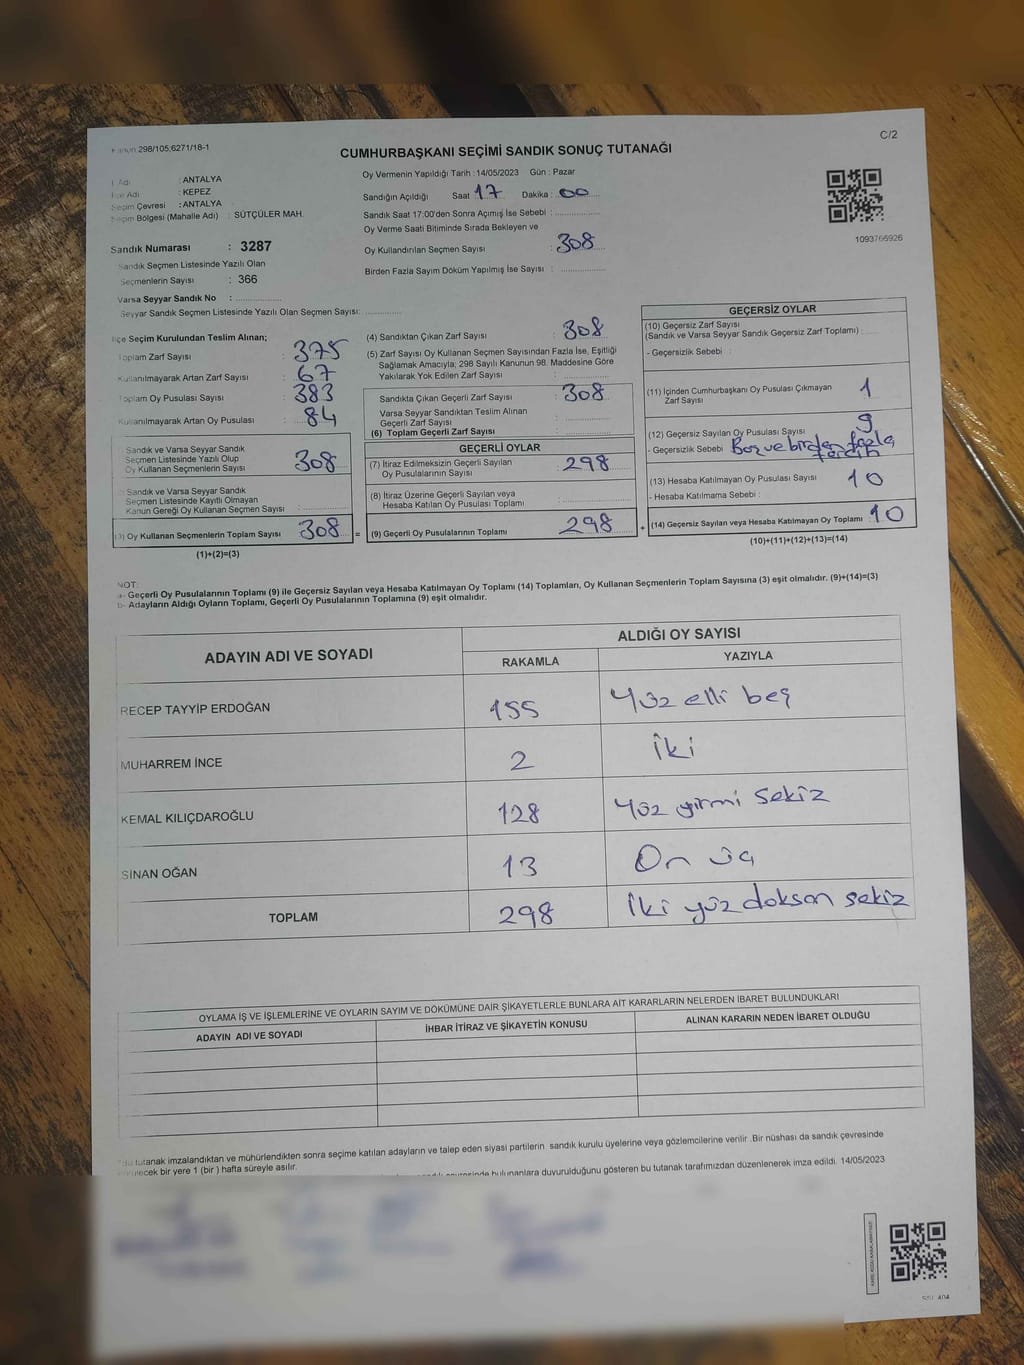 298/105;6271/18-1
C/2
CUMHURBAŞKANI SEÇİMİ SANDIK SONUÇ TUTANAĞI
Adı : ANTALYA
Adı : KEPEZ
Seçim Çevresi : ANTALYA
Seçim Bölgesi (Mahalle Adı) : SÜTÇÜLER MAH.
Sandık Numarası : 3287
Sandık Seçmen Listesinde Yazılı Olan
Seçmenlerin Sayısı : 366
Varsa Seyyar Sandık No :
Seyyar Sandık Seçmen Listesinde Yazılı Olan Seçmen Sayısı:
Oy Vermenin Yapıldığı Tarih : 14/05/2023 Gün : Pazar
Sandığın Açıldığı Saat 17 Dakika : 00
Sandık Saat 17:00'den Sonra Açımış İse Sebebi :
Oy Verme Saati Bitiminde Sırada Bekleyen ve
Oy Kullandırılan Seçmen Sayısı : 308
Birden Fazla Sayım Döküm Yapılmış İse Sayısı :
1093766926
İlçe Seçim Kurulundan Teslim Alınan;
Toplam Zarf Sayısı : 375
Kullanılmayarak Artan Zarf Sayısı : 67
Toplam Oy Pusulası Sayısı : 383
Kullanılmayarak Artan Oy Pusulası : 84
Sandık ve Varsa Seyyar Sandık
Seçmen Listesinde Yazılı Olup
Oy Kullanan Seçmenlerin Sayısı 308
Sandık ve Varsa Seyyar Sandık
Seçmen Listesinde Kayıtlı Olmayan
Kanun Gereği Oy Kullanan Seçmen Sayısı :
(3) Oy Kullanan Seçmenlerin Toplam Sayısı 308 =
(1)+(2)=(3)
(4) Sandıktan Çıkan Zarf Sayısı : 308
(5) Zarf Sayısı Oy Kullanan Seçmen Sayısından Fazla İse, Eşitliği
Sağlamak Amacıyla; 298 Sayılı Kanunun 98. Maddesine Göre
Yakılarak Yok Edilen Zarf Sayısı :
Sandıkta Çıkan Geçerli Zarf Sayısı : 308
Varsa Seyyar Sandıktan Teslim Alınan
Geçerli Zarf Sayısı :
(6) Toplam Geçerli Zarf Sayısı :
GEÇERLİ OYLAR
(7) İtiraz Edilmeksizin Geçerli Sayılan
Oy Pusulalarının Sayısı : 298
(8) İtiraz Üzerine Geçerli Sayılan veya
Hesaba Katılan Oy Pusulası Toplamı :
(9) Geçerli Oy Pusulalarının Toplamı 298 +
GEÇERSİZ OYLAR
(10) Geçersiz Zarf Sayısı
(Sandık ve Varsa Seyyar Sandık Geçersiz Zarf Toplamı) :
- Geçersizlik Sebebi :
(11) İçinden Cumhurbaşkanı Oy Pusulası Çıkmayan
Zarf Sayısı : 1
(12) Geçersiz Sayılan Oy Pusulası Sayısı : 9
- Geçersizlik Sebebi : Boş ve birden fazla
tercih
(13) Hesaba Katılmayan Oy Pusulası Sayısı : 10
- Hesaba Katılmama Sebebi :
(14) Geçersiz Sayılan veya Hesaba Katılmayan Oy Toplamı : 10
(10)+(11)+(12)+(13)=(14)
NOT:
a- Geçerli Oy Pusulalarının Toplamı (9) ile Geçersiz Sayılan veya Hesaba Katılmayan Oy Toplamı (14) Toplamları, Oy Kullanan Seçmenlerin Toplam Sayısına (3) eşit olmalıdır. (9)+(14)=(3)
b- Adayların Aldığı Oyların Toplamı, Geçerli Oy Pusulalarının Toplamına (9) eşit olmalıdır.
ADAYIN ADI VE SOYADI
ALDIĞI OY SAYISI
RAKAMLA YAZIYLA
RECEP TAYYİP ERDOĞAN 155 Yüz elli beş
MUHARREM İNCE 2 İki
KEMAL KILIÇDAROĞLU 128 Yüz yirmi sekiz
SİNAN OĞAN 13 On üç
TOPLAM 298 İki yüz doksan sekiz
OYLAMA İŞ VE İŞLEMLERİNE VE OYLARIN SAYIM VE DÖKÜMÜNE DAİR ŞİKAYETLERLE BUNLARA AİT KARARLARIN NELERDEN İBARET BULUNDUKLARI
ADAYIN ADI VE SOYADI İHBAR İTİRAZ VE ŞİKAYETİN KONUSU ALINAN KARARIN NEDEN İBARET OLDUĞU
tutanak imzalandıktan ve mühürlendikten sonra seçime katılan adayların ve talep eden siyasi partilerin sandık kurulu üyelerine veya gözlemcilerine verilir .Bir nüshası da sandık çevresinde
bir yere 1 (bir ) hafta süreyle asılır.
bulunanlara duyurulduğunu gösteren bu tutanak tarafımızdan düzenlenerek imza edildi. 14/05/2023